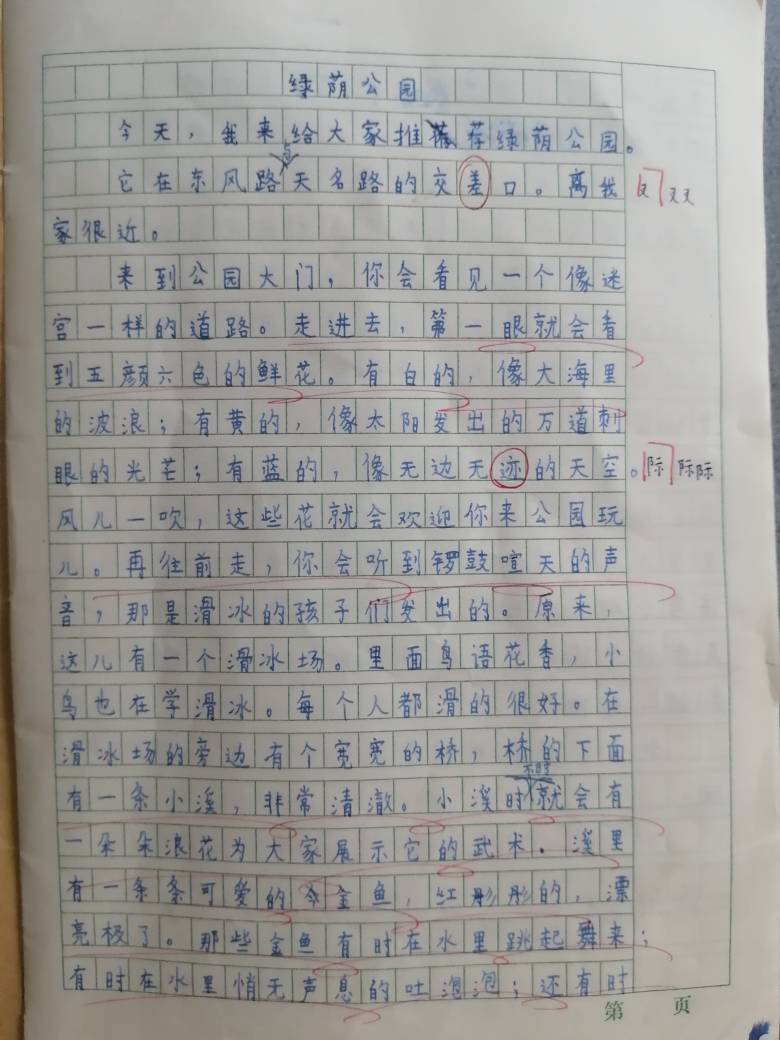 绿荫公园
今天，我来给大家推荐绿荫公园。
它在东风路与天名路的交差口。离我 叉叉叉
家很近。
来到公园大门，你会看见一个像迷
宫一样的道路。走进去，第一眼就会看
到五颜六色的鲜花。有白的，像大海里
的波浪；有黄的，像太阳发出的万道刺
眼的光芒；有蓝的，像无边无迹的天空。 际际际
风儿一吹，这些花就会欢迎你来公园玩
儿。再往前走，你会听到锣鼓喧天的声
音，那是滑冰的孩子们发出的。原来，
这儿有一个滑冰场。里面鸟语花香，小
鸟也在学滑冰。每个人都滑的很好。在
滑冰场的旁边有个宽宽的桥，桥的下面
有一条小溪，非常清澈。小溪时不时就会有
一朵朵浪花为大家展示它的武术。溪里
有一条条可爱的金鱼，红彤彤的，漂
亮极了。那些金鱼有时在水里跳起舞来；
有时在水里悄无声息的吐泡泡；还有时
第 页